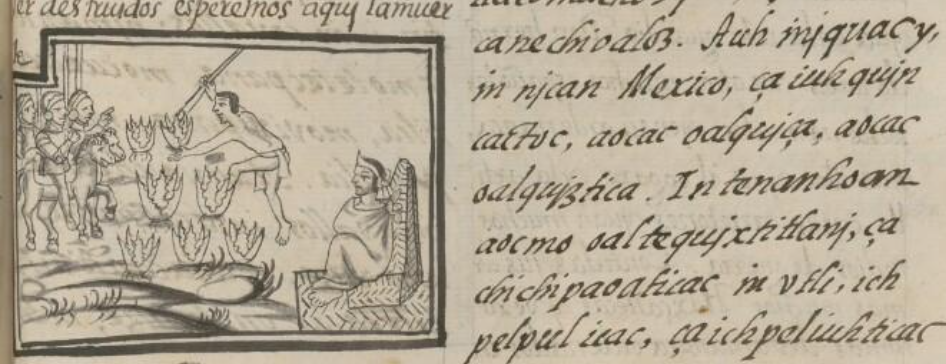 destruidos esperemos aqui la muer
te
canechioaloz. Auh injquac y,
in njcan Mexico, ça iuhqujn
cactoc, aocac oalquiça, aocac
oalqujztica. In tenanhoan
aocmo oaltequjxtitlanj, ça
chichipaoaticac in vtli, ich
pelpul iuac, ça ichpeliuhticac